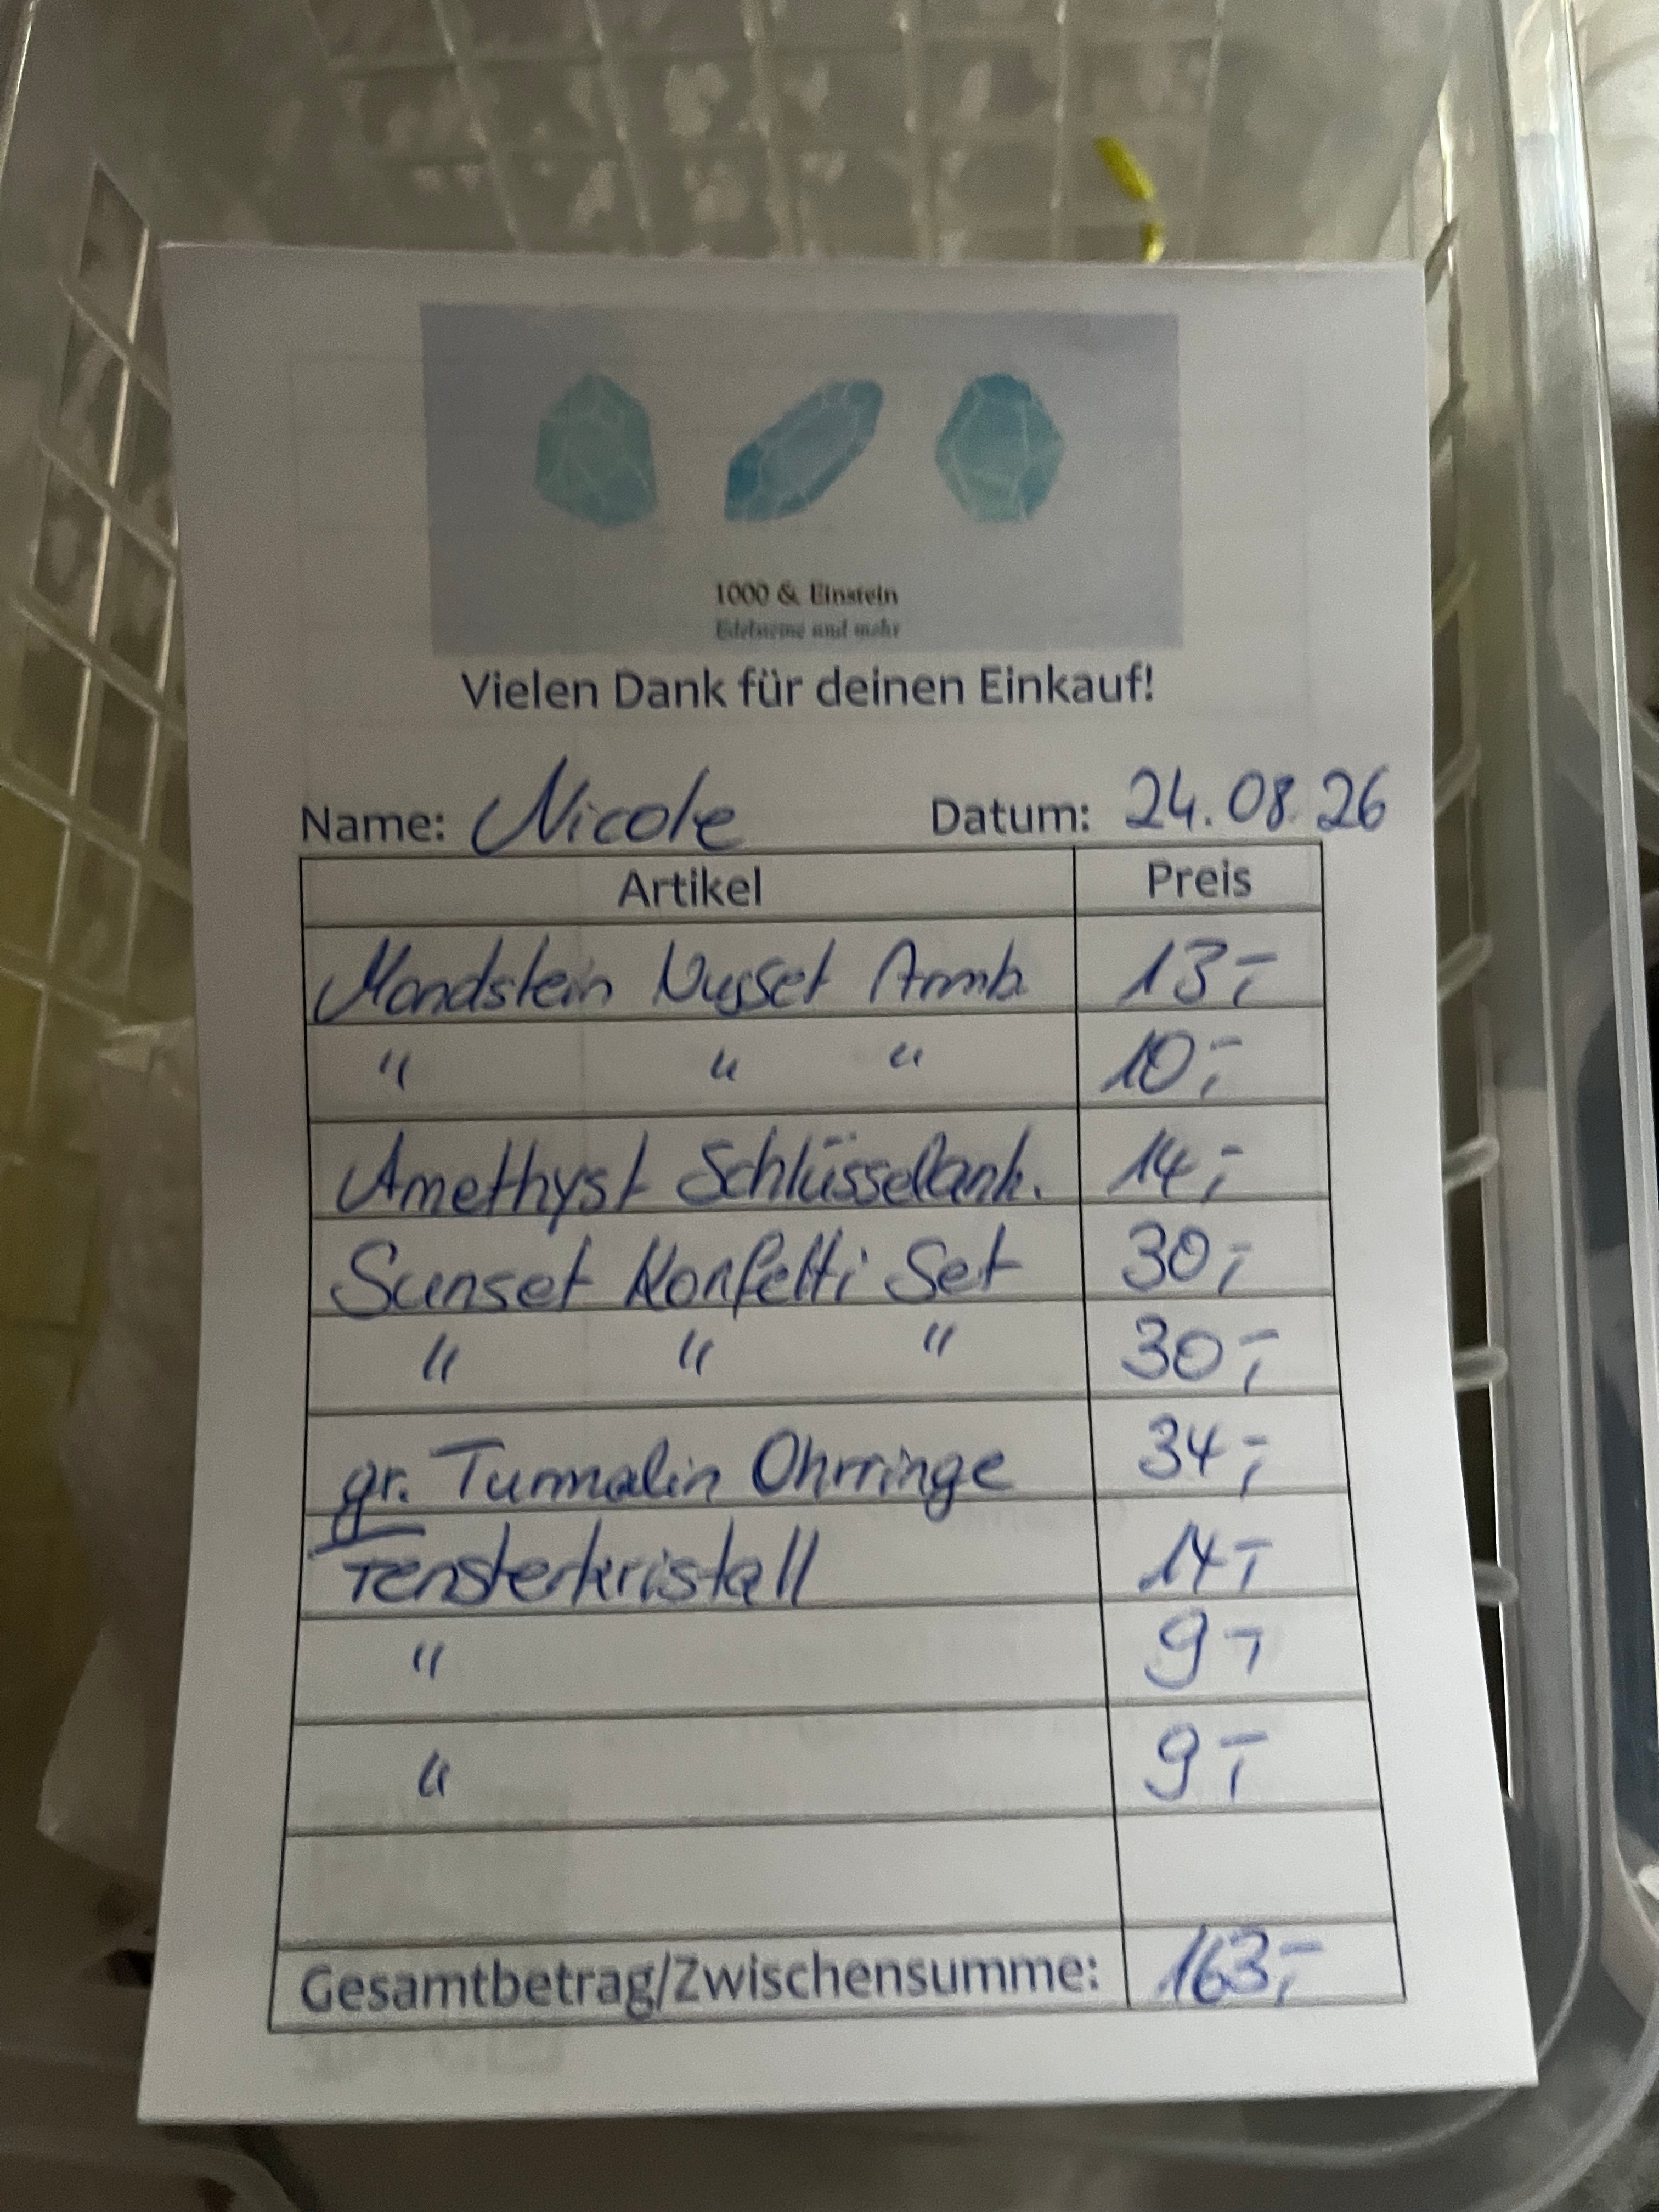 1000 & Einstein
Edelsteine und mehr
Vielen Dank für deinen Einkauf!
Name: Nicole Datum: 24.08.26
Artikel Preis
Mondstein Nugget Armb. 13,-
" " " 10,-
Amethyst Schlüsselanh. 14,-
Sunset Konfetti Set 30,-
" " " 30,-
gr. Turmalin Ohrringe 34,-
Fensterkristall 14,-
" 9,-
" 9,-
Gesamtbetrag/Zwischensumme: 163,-